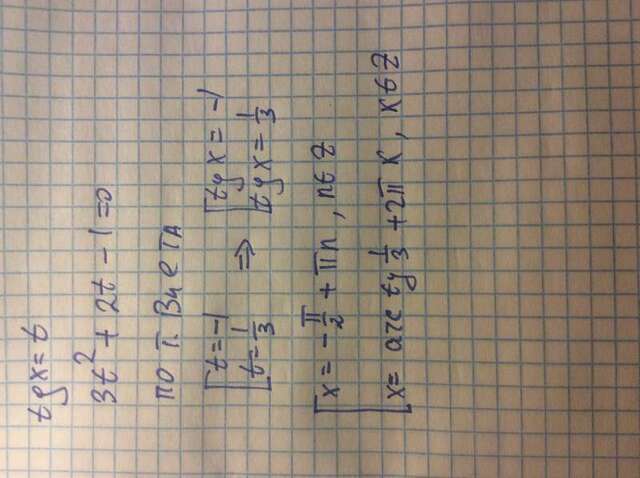 tgx = t
3t² + 2t - 1 = 0
по т. Виета
[t = -1 ⇒ [tgx = -1
[t = 1/3 [tgx = 1/3
[x = -π/2 + πn, n∈Z
[x = arctg 1/3 + 2πk, k∈Z